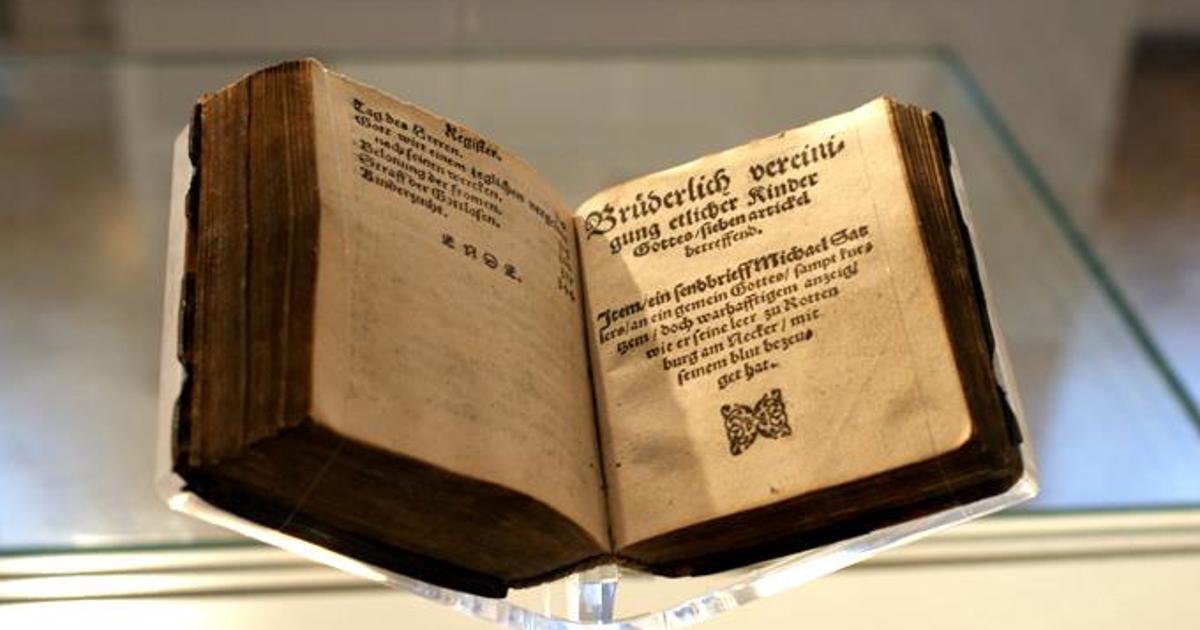 Register.
Tag des Herren.
Gott wirt einem jeglichen
nach seinen wercken.
Belonung der fromen.
Straff der Gottlosen.
Kinderzucht.
E N D E.
Brüderlich vereini⸗
gung etlicher Kinder
Gottes/ sieben artickel
betreffend.
Item/ ein sendbrieff Michael Sat
lers/ an ein gemein Gottes/ sampt kur⸗
tzem/ doch warhafftigem anzeig/
wie er seine leer zu Rotten
burg am Necker/ mit
seinem blut bezeu⸗
get hat.